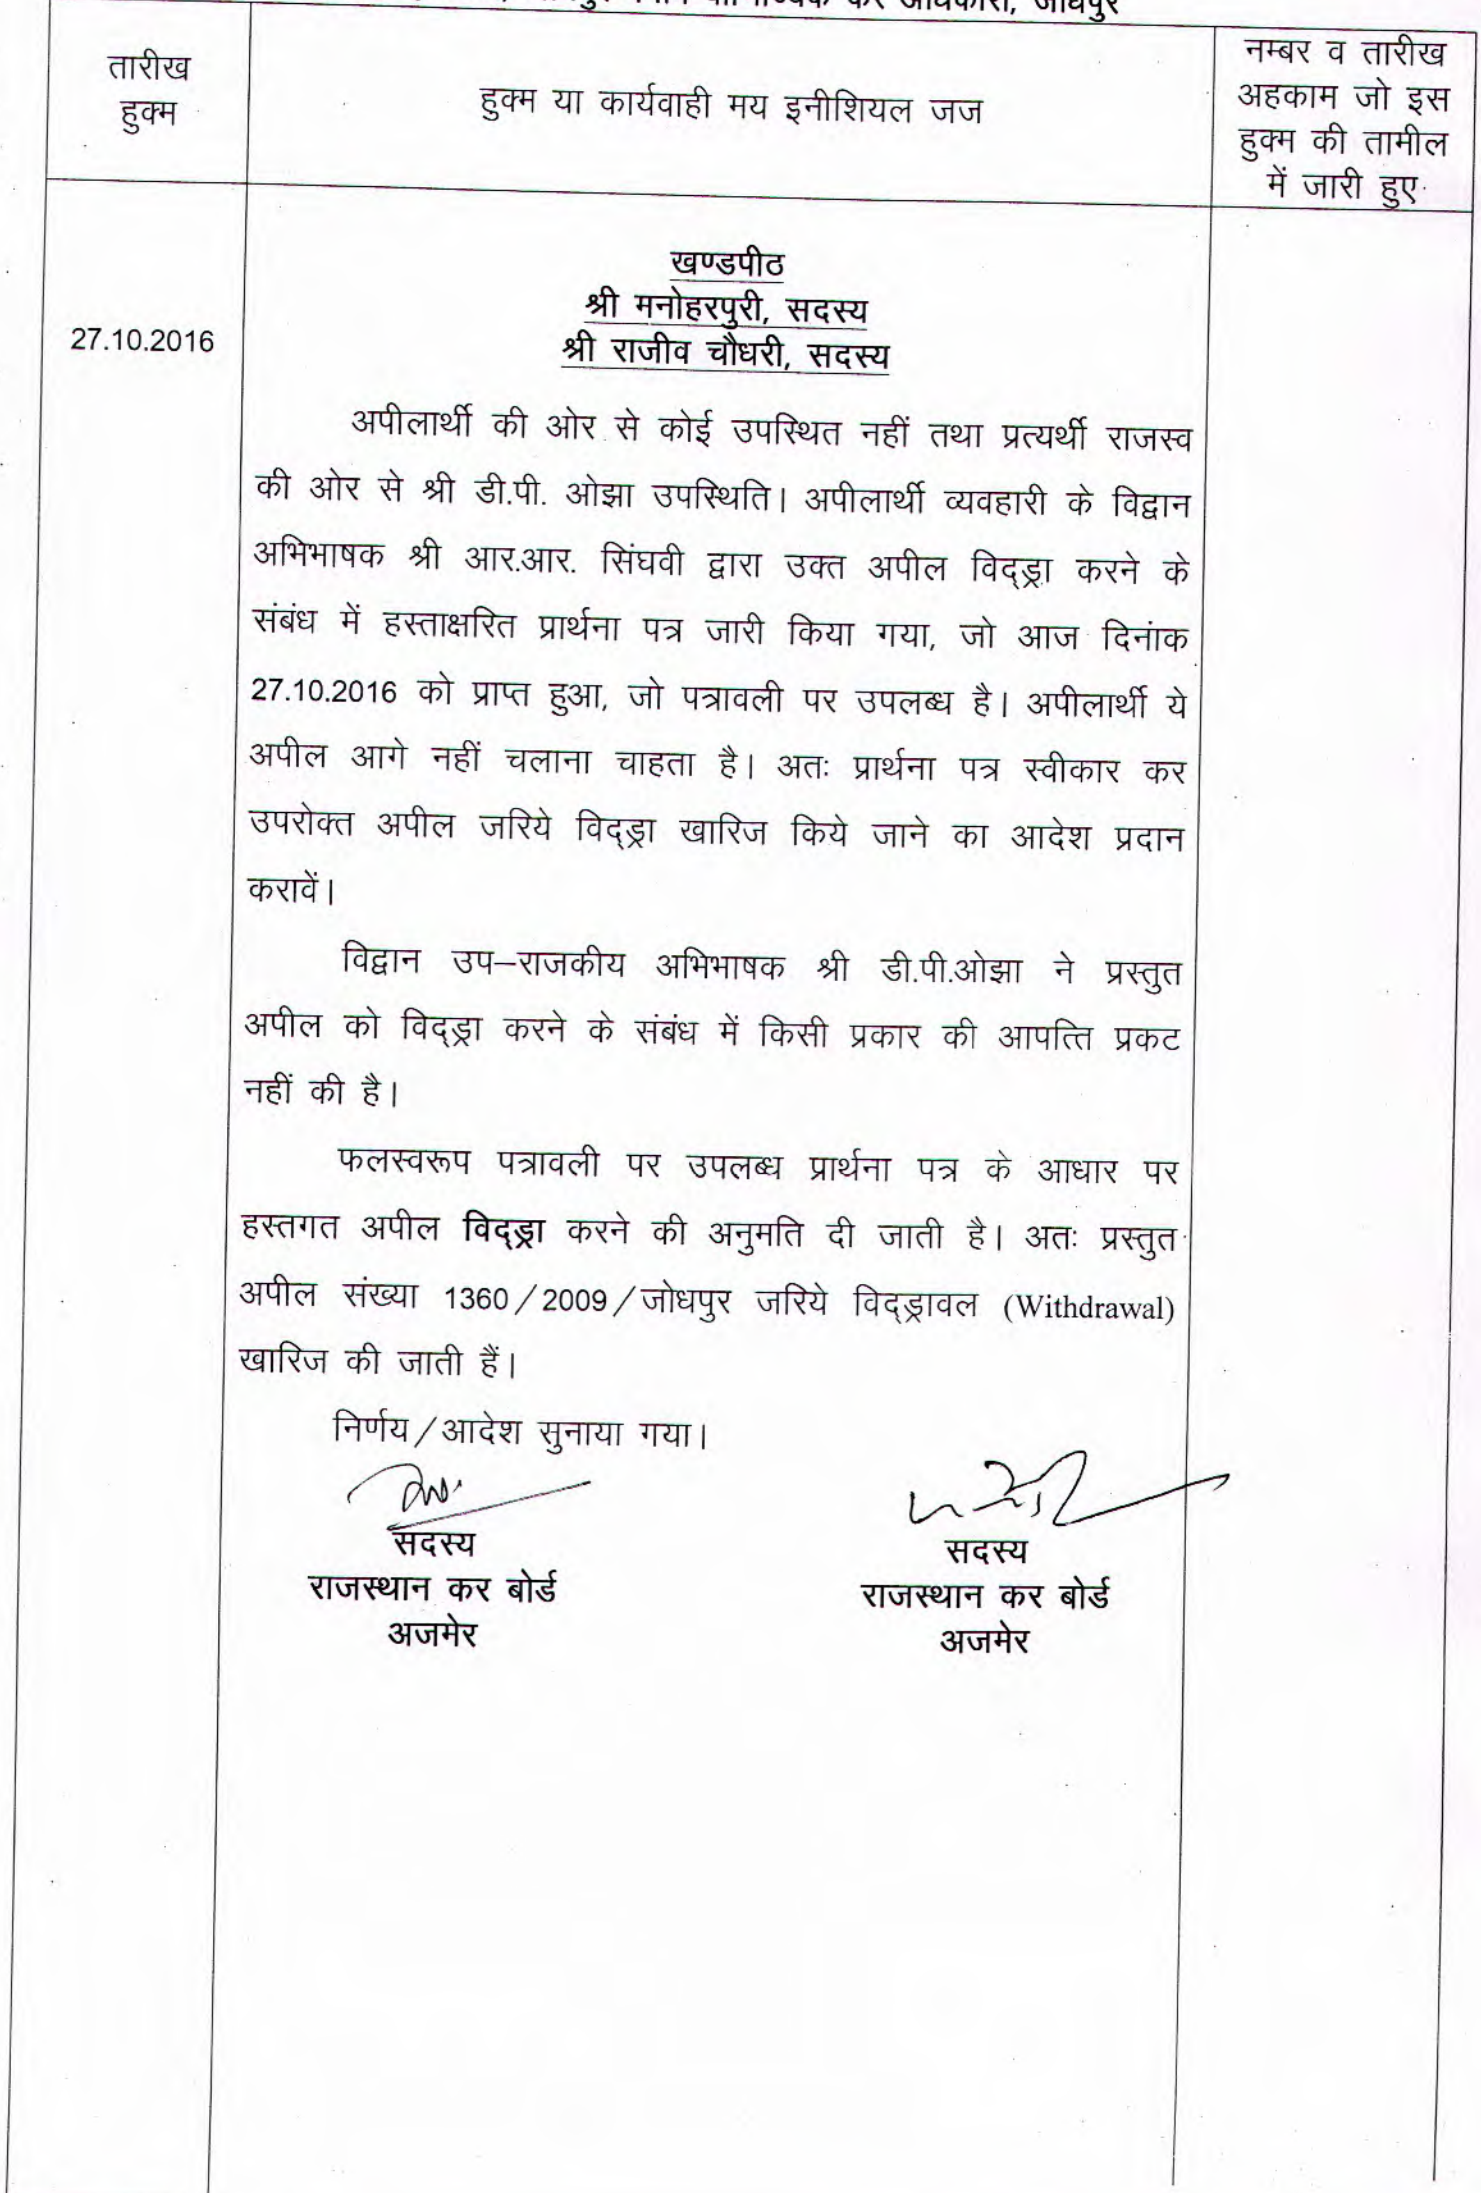 कर अधिकारी, जोधपुर
तारीख
हुक्म
हुक्म या कार्यवाही मय इनीशियल जज
नम्बर व तारीख
अहकाम जो इस
हुक्म की तामील
में जारी हुए
27.10.2016
खण्डपीठ
श्री मनोहरपुरी, सदस्य
श्री राजीव चौधरी, सदस्य
अपीलार्थी की ओर से कोई उपस्थित नहीं तथा प्रत्यर्थी राजस्व
की ओर से श्री डी.पी. ओझा उपस्थिति। अपीलार्थी व्यवहारी के विद्वान
अभिभाषक श्री आर.आर. सिंघवी द्वारा उक्त अपील विद्ड्रा करने के
संबंध में हस्ताक्षरित प्रार्थना पत्र जारी किया गया, जो आज दिनांक
27.10.2016 को प्राप्त हुआ, जो पत्रावली पर उपलब्ध है। अपीलार्थी ये
अपील आगे नहीं चलाना चाहता है। अतः प्रार्थना पत्र स्वीकार कर
उपरोक्त अपील जरिये विद्ड्रा खारिज किये जाने का आदेश प्रदान
करावें।
विद्वान उप–राजकीय अभिभाषक श्री डी.पी.ओझा ने प्रस्तुत
अपील को विद्ड्रा करने के संबंध में किसी प्रकार की आपत्ति प्रकट
नहीं की है।
फलस्वरूप पत्रावली पर उपलब्ध प्रार्थना पत्र के आधार पर
हस्तगत अपील विद्ड्रा करने की अनुमति दी जाती है। अतः प्रस्तुत
अपील संख्या 1360/2009/जोधपुर जरिये विद्ड्रावल (Withdrawal)
खारिज की जाती हैं।
निर्णय/आदेश सुनाया गया।
सदस्य
राजस्थान कर बोर्ड
अजमेर
सदस्य
राजस्थान कर बोर्ड
अजमेर